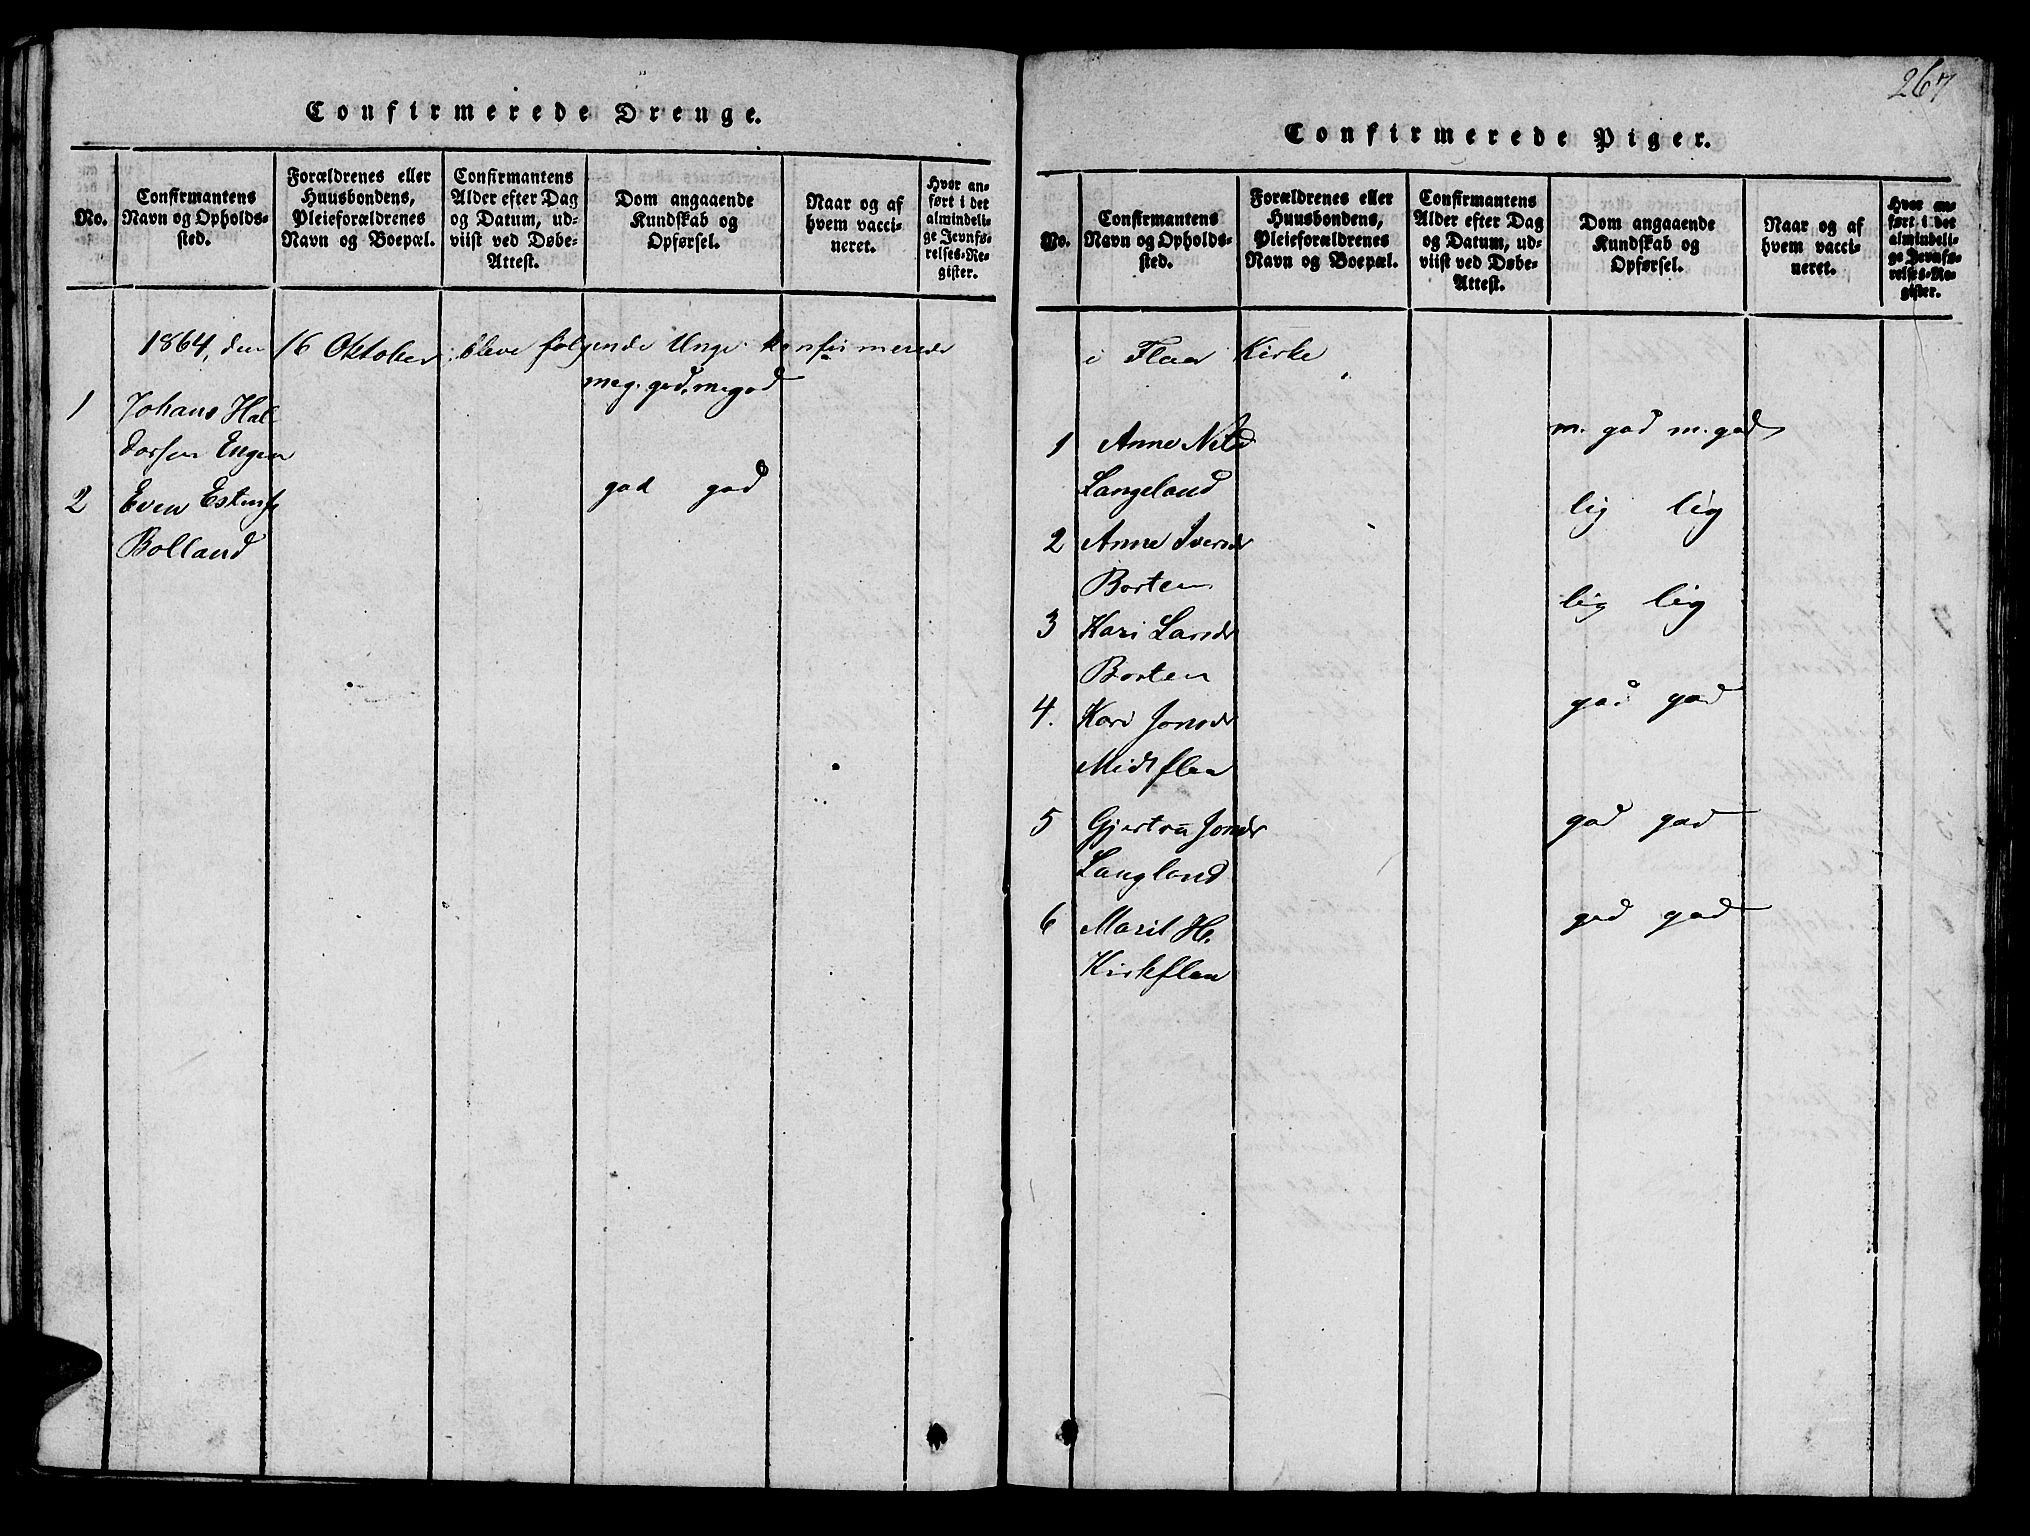 Confirmerede Drenge.
No.
Confirmantens
Navn og Opholds-
sted.
Forældrenes eller
Huusbondens,
Pleieforældrenes
Navn og Boepæl.
Confirmantens
Alder efter Dag
og Datum, ud-
viist ved Døbe-
Attest.
Dom angaaende
Kundskab og
Opførsel.
Naar og af
hvem vacci-
neret.
Hvor an-
ført i det
almindeli-
ge Jevnfø-
relses-Re-
gister.
1864, den 16 Oktober bleve følgende Unge konfirmerede
meg. god, m. god
1 Johans Hal-
dorsen Engen
2 Even Estens. god god
Bolland
267
Confirmerede Piger.
No.
Confirmantens
Navn og Opholds-
sted.
Forældrenes eller
Huusbondens,
Pleieforældrenes
Navn og Boepæl.
Confirmantens
Alder efter Dag
og Datum, ud-
viist ved Døbe-
Attest.
Dom angaaende
Kundskab og
Opførsel.
Naar og af
hvem vacci-
neret.
Hvor an-
ført i det
almindeli-
ge Jevnfø-
relses-Re-
gister.
i Flaa Kirke
1 Anne Nilsd m. god m. god
Langeland
2 Anne Iversdr lig lig
Borten
3 Kari Larsdr lig lig
Borten
4. Kari Jonsdr god god
Midtflaa
5 Gjertru Jonsdr god god
Langland
6 Marit H. god god
Kirkflaa